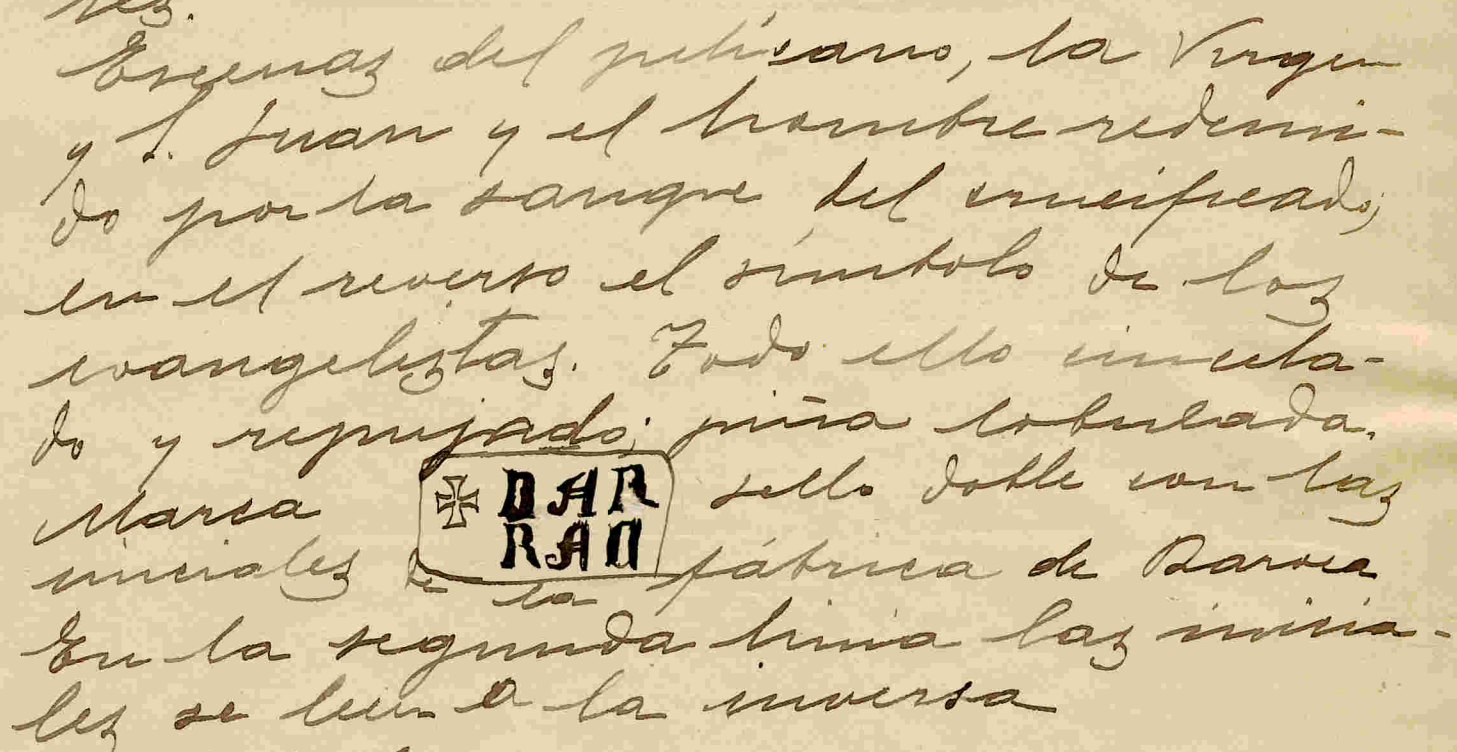 Escenas del pelícano, la Virgen
y S. Juan y el hombre redemi-
do por la sangre del crucificado;
en el reverso el símbolo de los
evangelistas. Todo ello cincela-
do y repujado; piña lobulada.
Marca ✠ DAR RAD sello doble con las
iniciales de la fábrica de Daroca
En la segunda linia las inicia-
les se leen a la inversa